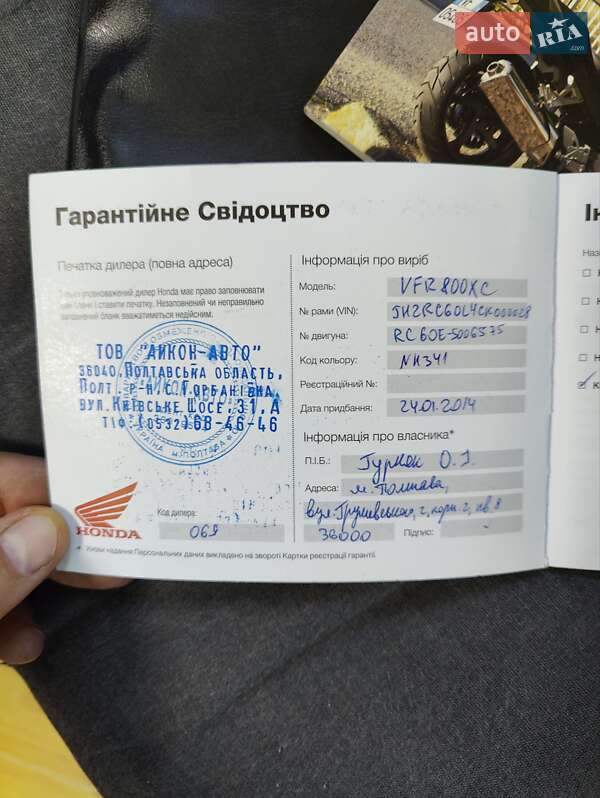 auto RIA .com
Гарантійне Свідоцтво
Печатка дилера (повна адреса)
уповноважений дилер Honda має право заповнювати
цей бланк і ставити печатку. Незаповнений чи неправильно
заповнений бланк вважатиметься недійсним.
ТОВ "АИКОН-АВТО"
36040, ПОЛТАВСЬКА ОБЛАСТЬ,
ПОЛТ. Р-Н, С. ГОРБАНІВКА,
ВУЛ. КИЇВСЬКЕ ШОСЕ, 31, А
Т/Ф: (0532) 68-46-46
HONDA
Код дилера:
069
Інформація про виріб
Модель: VFR800XC
№ рами (VIN): JH2RC60L4CK000028
№ двигуна: RC60E-5006575
Код кольору: NH341
Реєстраційний №:
Дата придбання: 24.01.2014
Інформація про власника*
П.І.Б.:
Адреса: м. Полтава,
36000
Підпис:
* Умови надання Персональних даних викладено на звороті Картки реєстрації гарантії.